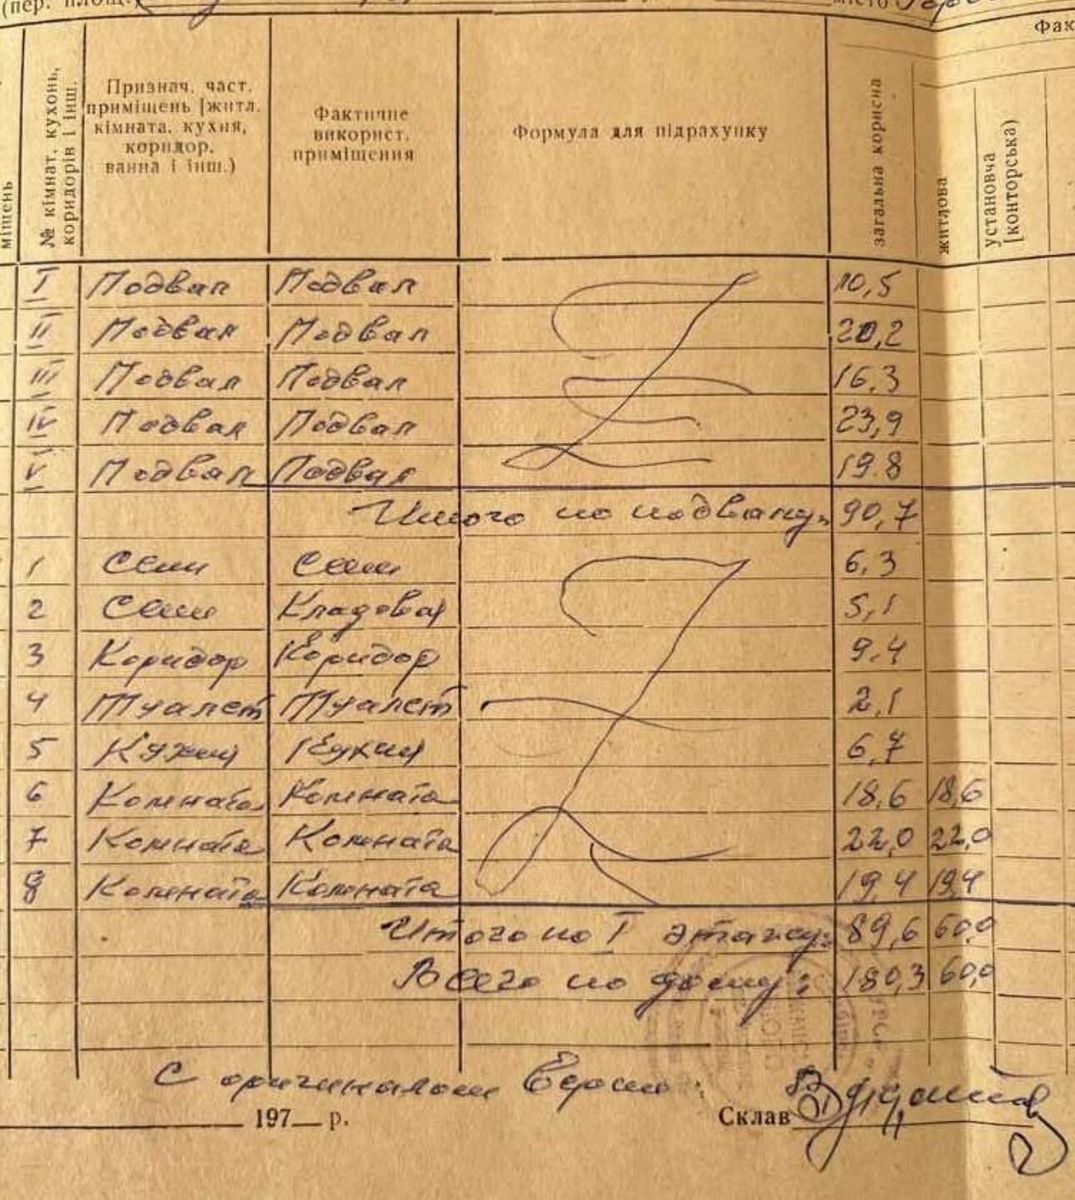 (пер. площ.
місто
Фак
мішень
№ кімнат, кухонь, коридорів і інш.
Признач. част. приміщень [житл. кімната, кухня, коридор, ванна і інш.)
Фактичне використ. приміщення
Формула для підрахунку
загальна корисна
житлова
установча [конторська)
I Подвал Подвал 10,5
II Подвал Подвал 20,2
III Подвал Подвал 16,3
IV Подвал Подвал 23,9
V Подвал Подвал 19.8
Итого по подвалу: 90,7
1 Сени Сени 6,3
2 Сени Кладовая 5,1
3 Коридор Коридор 9,4
4 Туалет Туалет 2,1
5 Кухня Кухня 6,7
6 Комната Комната 18,6 18,6
7 Комната Комната 22,0 22,0
8 Комната Комната 19,4 19,4
Итого по I этажу: 89,6 60,0
Всего по дому: 180,3 60,0
С оригиналом верно:
197 р.
Склав